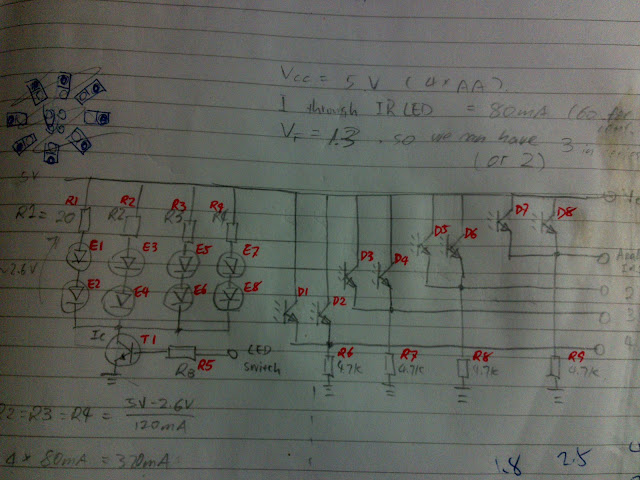 Vcc = 5 V (4 * AA)
I through IR LED = 80mA (60 for
VF = 1.3 . so we can have 3 in
(or 2)
5V
R1 R2 R3 R4 D7 D8
R1= R2 R3 R4
20
D5 D6
E1 E3 E5 E7 D3 D4
~2.6V
E2 E4 E6 E8 D1 D2
2
3
4
Ic T1
R5 LED
RB switch
R6 R7 R8 R9
4.7K 4.7K 4.7K 4.7K
R2=R3=R4= 5V-2.6V
120mA
4 * 80mA = 320mA
1.8 2.5